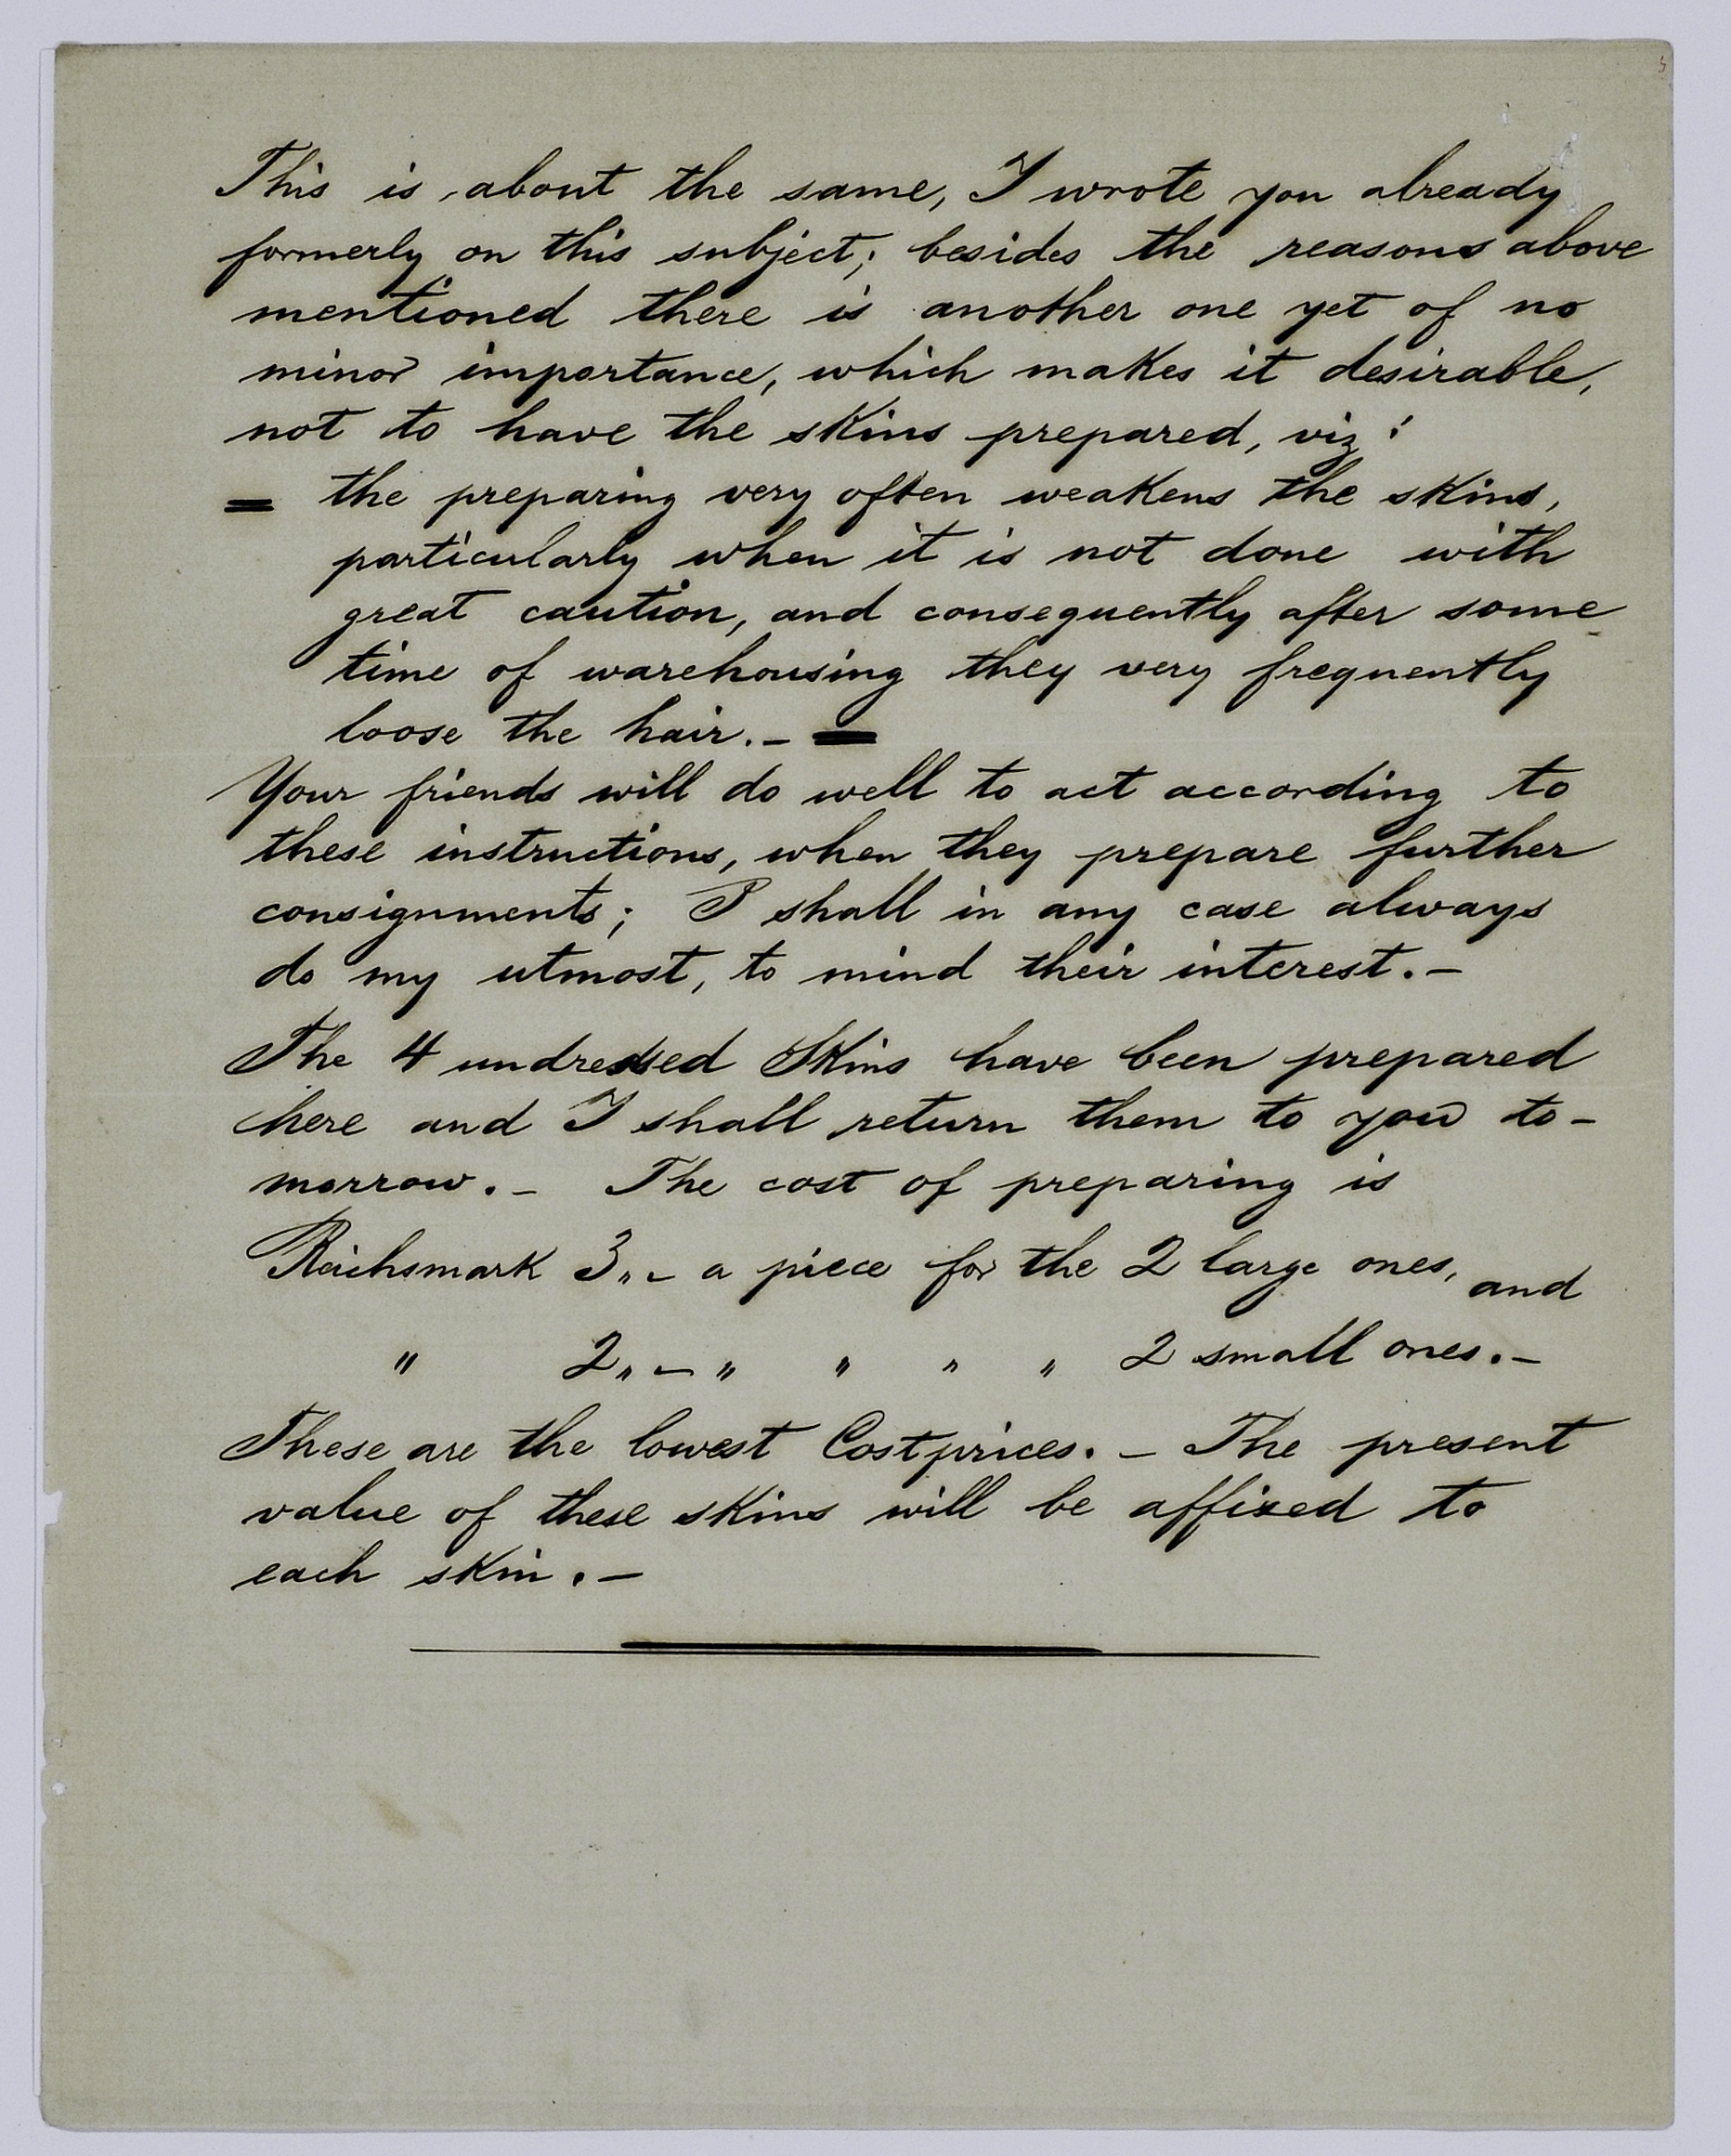 This is about the same, I wrote you already
formerly on this subject; besides the reasons above
mentioned there is another one yet of no
minor importance, which makes it desirable,
not to have the skins prepared, viz:
= the preparing very often weakens the skins,
particularly when it is not done with
great caution, and consequently after some
time of warehousing they very frequently
loose the hair.- =
Your friends will do well to act according to
these instructions, when they prepare further
consignments; I shall in any case always
do my utmost, to mind their interest.-
The 4 undressed Skins have been prepared
here and I shall return them to you to-
morrow.- The cost of preparing is
Reichsmark 3„- a piece for the 2 large ones, and
" 2„- " " " " 2 small ones.-
These are the lowest Costprices.- The present
value of these skins will be affixed to
each skin.-